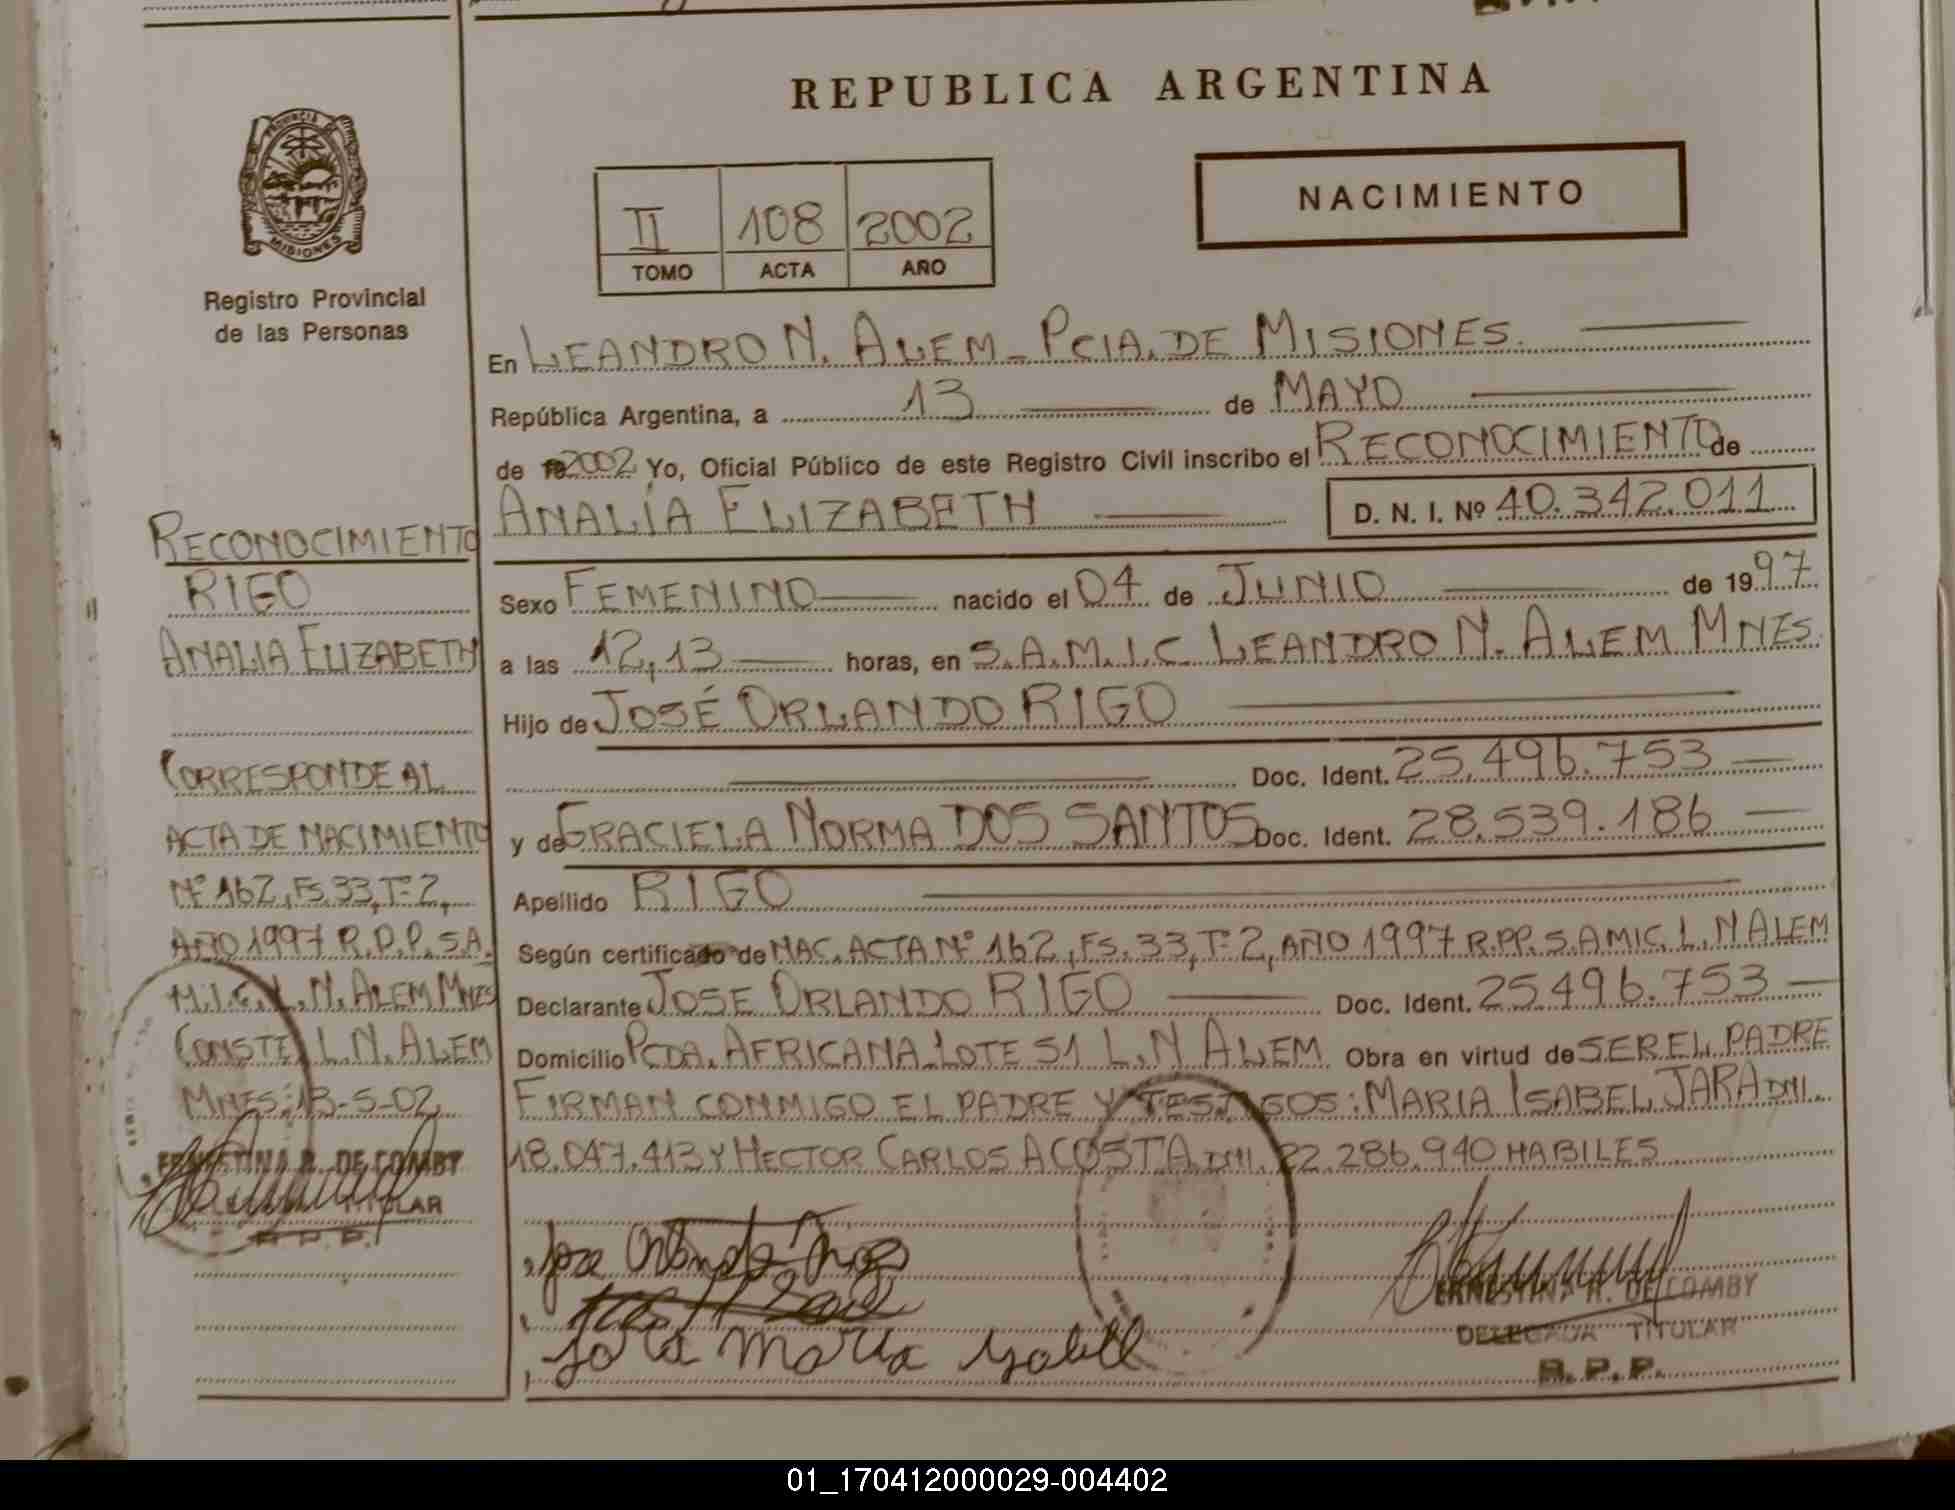 REPUBLICA ARGENTINA
PROVINCIA DE
MISIONES
Registro Provincial
de las Personas
II 108 2002
TOMO ACTA AÑO
NACIMIENTO
En LEANDRO N. ALEM - PCIA. DE MISIONES.
República Argentina, a 13 de MAYO
de 2002 Yo, Oficial Público de este Registro Civil inscribo el RECONOCIMIENTO de
ANALÍA ELIZABETH D. N. I. Nº 40.342.011
Sexo FEMENINO nacido el 04 de JUNIO de 1997
a las 12,13 horas, en S.A.M.I.C. LEANDRO N. ALEM MNES.
Hijo de JOSÉ ORLANDO RIGO
Doc. Ident. 25.496.753
y de GRACIELA NORMA DOS SANTOS Doc. Ident. 28.539.186
Apellido RIGO
Según certificado de NAC. ACTA Nº 162, FS. 33, Tº 2, AÑO 1997 R.PP. S.AMIC. L. N ALEM
Declarante JOSE ORLANDO RIGO Doc. Ident. 25.496.753
Domicilio PCDA. AFRICANA LOTE 51 L.N ALEM Obra en virtud de SER EL PADRE
FIRMAN CONMIGO EL PADRE Y TESTIGOS: MARIA ISABEL JARA DNI.
18.047.413 Y HECTOR CARLOS ACOSTA DNI. 22.286.940 HABILES
Jara Maria Ysabel
ERNESTINA R. DE COMBY
DELEGADA TITULAR
R.P.P.
RECONOCIMIENTO
RIGO
ANALIA ELIZABETH
CORRESPONDE AL
ACTA DE NACIMIENTO
Nº 162, FS. 33, Tº 2,
AÑO 1997 R.P.P. S.A.
M.I.C. L. N. ALEM MNES
CONSTE, L. N. ALEM
MNES: 13-5-02
ERNESTINA R. DE COMBY
TITULAR
R.P.P.
01_170412000029-004402